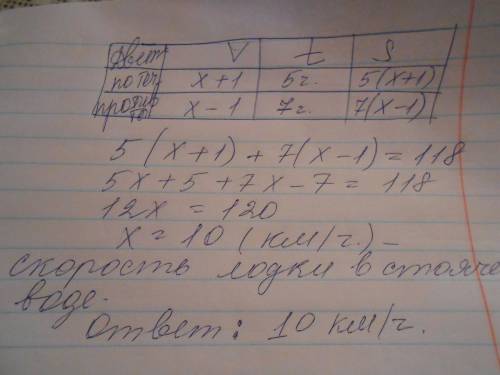 V t S
по теч x+1 5ч. 5(x+1)
против x-1 7ч. 7(x-1)
5(x+1)+7(x-1)=118
5x+5+7x-7=118
12x=120
x=10 (км/ч.) -
скорость лодки в стояче
воде.
Ответ: 10 км/ч.